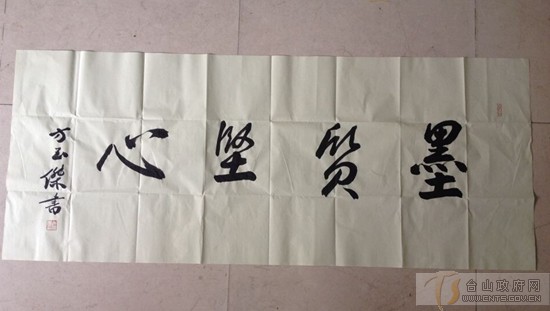 墨質堅心
方玉傑書
台山政府网
WWW.CNTS.GOV.CN